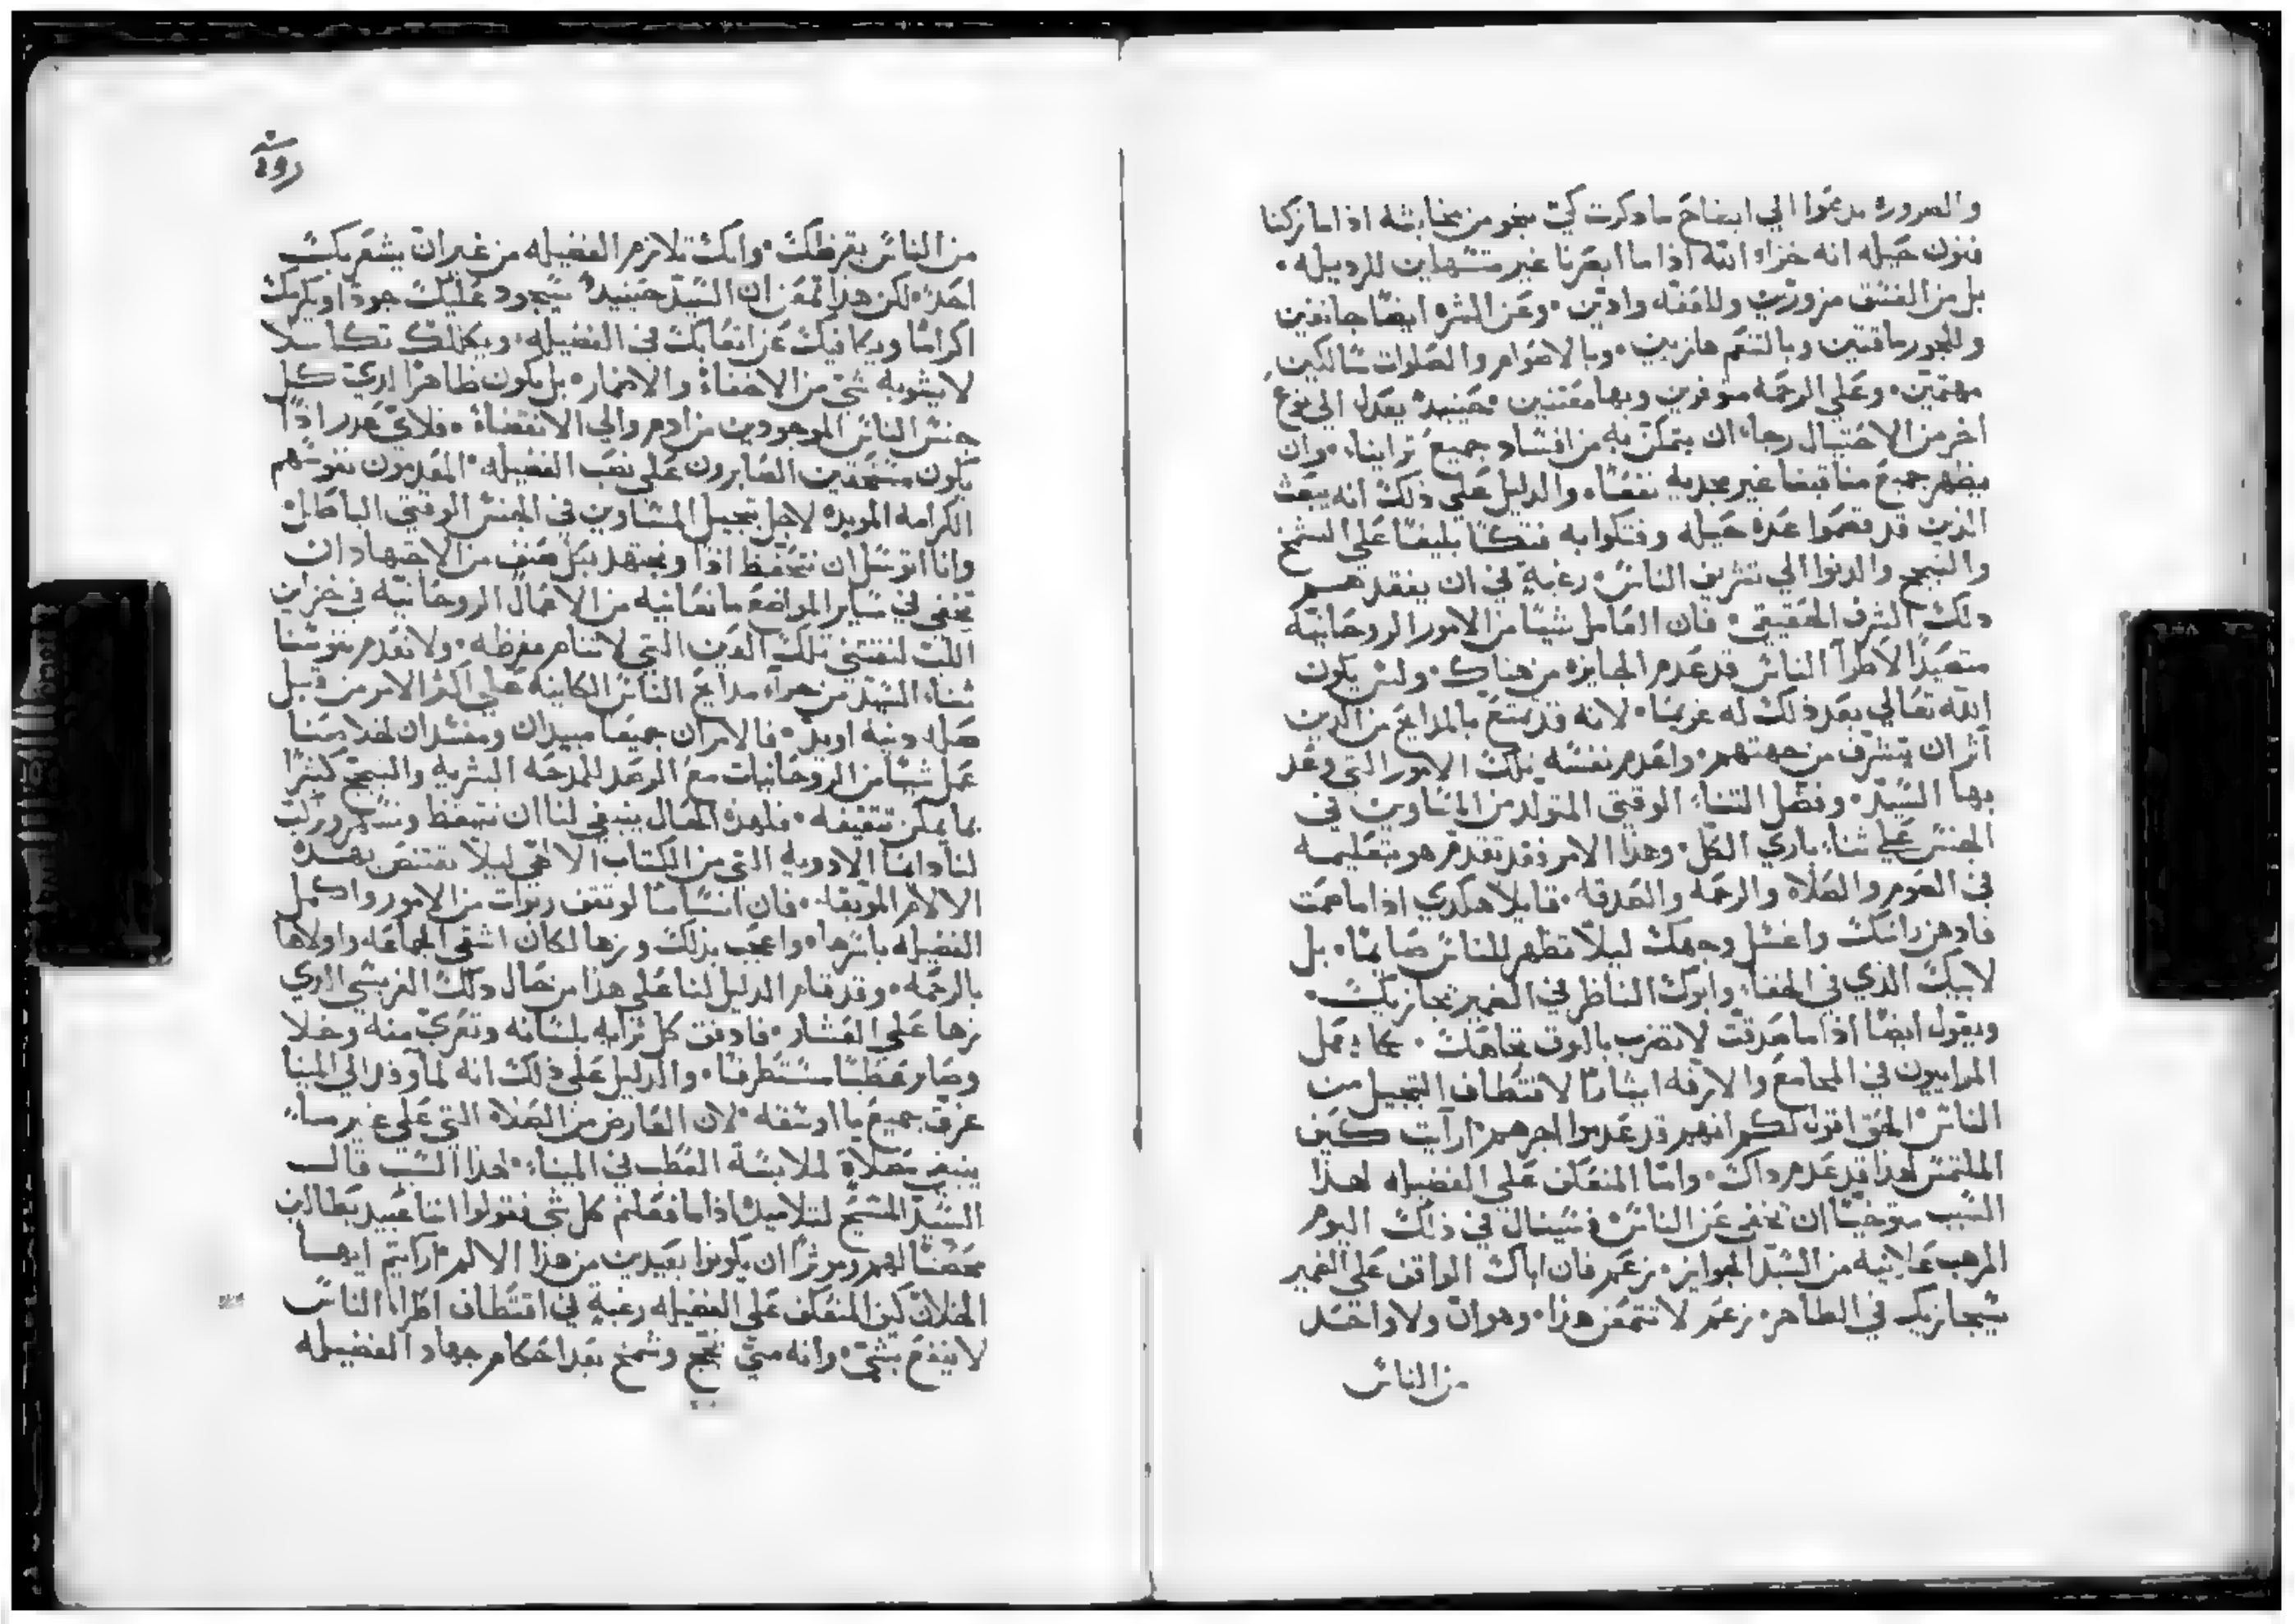 والضروره مدعوا الي ايضاح ما دكرت كي ننجو من مخابثه اذا ما تركنا
فنون حيله انه خزاه الله اذا ما ابصرنا غير متشهاين للرديله.
بل من الفسق مزورين وللعفه وادين. وعن الشره ايضا جانفين
وللجور ماقتين وبالتنعم هازيين. وبالاصوام والصلوات سالكين
مهتمين. وعلي الرحمه متوفرين وبها معتنين. حينيد يعدل الي نوع
اخر من الاحتيال رجاء ان يتمكن به من افساد جميع تراينا. وان
يظهر جميع مناقبنا غير مجديه نفعا. والدليل علي ذلك انه يبعث
الذين قد قمعوا عدة حيله وفتكوا به فتكا بليغا علي الشمخ
والتبجح والدنوا الي تشريف الناس. رغبة في ان يفقدهم
دلك الشرف الحقيقي. فان العامل شيا من الامور الروحانيه
متصيدا لاطرآ الناس قد عدم الجايزه من هناك. وليس يكون
الله تعالي بعد ذلك له غريما. لانه قد تمتع بالمدايح من الدين
آثر ان يتشرف من جهتهم. واعدم نفسه تلك الامور التي وعد
بها السيد. وفضل الثناء الوقتي المتولد من المساوين في
الجنس علي ثناء باري الكل. وهذا الامر فقد تقدم هو بتعليمه
في الصوم والصلاه والرحمه والصدقه. قايلا هكدي اذا ما صمت
فادهن راسك واغسل وجهك ليلا تظهر للناس صايما. بل
لابيك الذي في الخفاء وابوك الناظر في الضمير يجازيك.
ويقول ايضا اذا ما صدقت لا تضرب بالبوق تجاهك. كما يعمل
المراييون في المجامع والازقه ايثارا لاقتطاف التبجيل من
الناس الحق اقول لكم انهم قد عدموا اجرهم. ارآيت كيف
الملتمس هذا قد عدم داك. واما المنعكف علي الفضيله لهذا
السبب متوخيا ان تخفي عن الناس فسينال في ذلك اليوم
المرهب علانيه من السيد الجوايز. زعم فان اباك الواقف علي الضمير
سيجازيك في الظاهر. زعم لا تتمعن هذا. وهو ان ولا واحد
من الناس
من الناس يقرظك. وانك تلازم الفضيله من غير ان يشعر بك
احد. لكن هذا تمعن ان السيد حينيد سيجود عليك جودا ويكرمك
اكراما ويكافيك عن اتعابك في الفضيله. ويكللك تكاسلا
لا يشوبه شي من الاخفاء والاضمار. بل يكون ظاهرا لدي كل
جنس الناس الموجودين من ادم والي الانقضاء. فلاي عدر اذا
يكون مستحقين الصابرون علي نصب الفضيله. المعدمون نفوسهم
الكرامه المويده لاجل تبجيل المساوين في الجنس الوقتي الباطل
وانا اتوسل ان نتحفظ اذا ونجتهد بكل صنف من الاجتهاد ان
نخفي في ساير المواضع ما نعانيه من الاعمال الروحانيه في خزاين
اللب لنقتني تلك العين التي لا تنام مقرظه. ولا نعدم نفوسنا
ثناء السيد من جرآء مدايح الناس الكاينه علي اكثر الامر من قبل
صله دنيه اويل. فالامران جميعا مبيدان ومفسدان لخلاصنا
عمل شيا من الروحانيات مع الرصد للمدحه البشريه والتبجح كثيرا
بما يمكن تثقيفه. فلهذه الحال ينبغي لنا ان نتيقظ ونستمر ونركب
لنا دايما الادويه التي من الكتاب الالاهي ليلا نقتنص بهذه
الالام الموبقه. فان انسانا ما لو ثقف ربوات من الامور واكمل
الفضيله باسرها. واعجب بذلك وزها لكان اشقي الجماعه واولاها
بالرحمه. وقد قام الدليل لنا علي هذا من حال دلك الفريسي الدي
زها علي العشار. فادفق كل ترآيه بلسانه وتعري منه وخلا
وصار عطبا مستطرفا. والدليل علي ذلك انه لما وفد الي المينا
غرق جميع ما اوسقه. لان العارض من الصلاه التي علي غير ما
ينبغي معادل لملابسة العطب في الميناء. لهذا السبب قال
السيد المسيح لتلاميذه اذا ما فعلتم كل شي فقولوا اننا عبيد بطالين
محصنا لهم وموثرا ان يكونوا بعيدين من هذا الالم. ارآيتم ايها
الخلان كيف المنعكف علي الفضيله رغبة في اقتطاف اطراء الناس
لا ينفع بشي. وانه متي تبجح وشمخ بعد احكام جهاد الفضيله